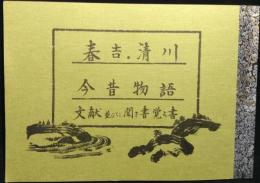 春吉・清川
今昔物語
文献並びに聞き書覚え書